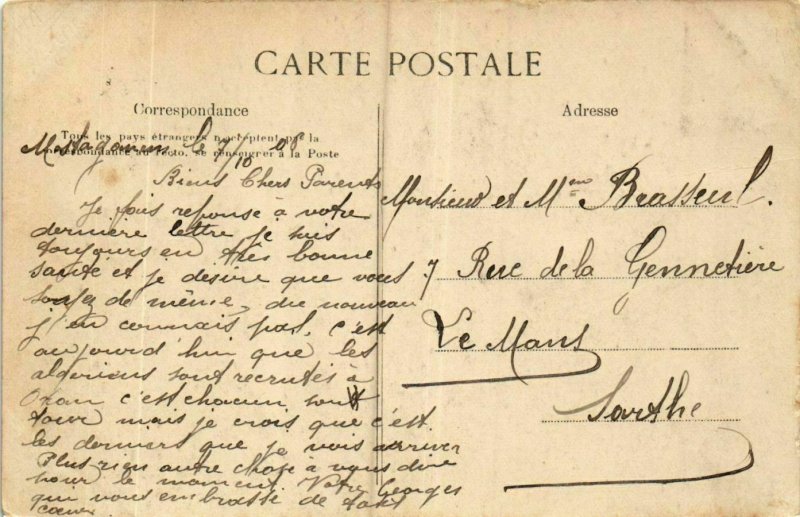 CARTE POSTALE
Correspondance
Tous les pays étrangers n'acceptent pas la
correspondance au recto, se renseigner à la Poste
Mostaganem le 7/10 08
Biens Chers Parents
Je fais reponse à votre
dernière lettre je suis
toujours en très bonne
santé et je desire que vous
soyez de même, du nouveau
j'en connais pas. c'est
aujourd'hui que les
algeriens sont recrutés à
Oran c'est chacun son
tour mais je crois que c'est
les derniers que je vois arriver
Plus rien autre chose à vous dire
pour le moment. Votre Georges
qui vous embrasse de tout
coeur
Adresse
Monsieur et Mme Brasseul.
7 Rue de la Gennetière
Le Mans
Sarthe